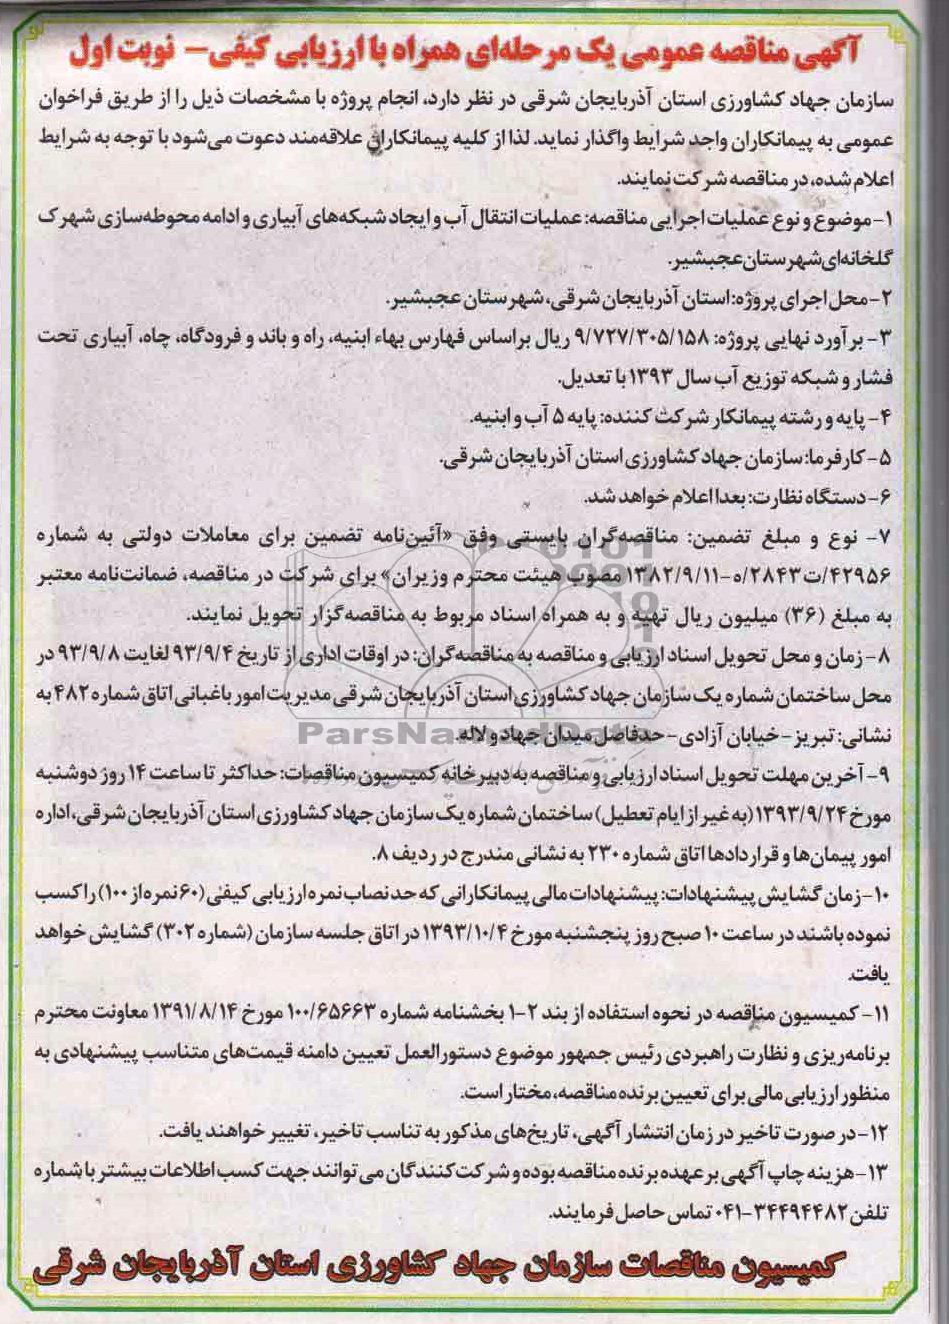 آگهی مناقصه عمومی یک مرحله‌ای همراه با ارزیابی کیفی– نوبت اول
سازمان جهاد کشاورزی استان آذربایجان شرقی در نظر دارد، انجام پروژه با مشخصات ذیل را از طریق فراخوان
عمومی به پیمانکاران واجد شرایط واگذار نماید. لذا از کلیه پیمانکاران علاقه‌مند دعوت می‌شود با توجه به شرایط
اعلام شده، در مناقصه شرکت نمایند.
۱- موضوع و نوع عملیات اجرایی مناقصه: عملیات انتقال آب و ایجاد شبکه‌های آبیاری و ادامه محوطه‌سازی شهرک
گلخانه‌ای شهرستان عجبشیر.
۲- محل اجرای پروژه: استان آذربایجان شرقی، شهرستان عجبشیر.
۳- برآورد نهایی پروژه: ۹/۷۲۷/۳۰۵/۱۵۸ ریال براساس فهارس بهاء ابنیه، راه و باند و فرودگاه، چاه، آبیاری تحت
فشار و شبکه توزیع آب سال ۱۳۹۳ با تعدیل.
۴- پایه و رشته پیمانکار شرکت کننده: پایه ۵ آب و ابنیه.
۵- کارفرما: سازمان جهاد کشاورزی استان آذربایجان شرقی.
۶- دستگاه نظارت: بعدا اعلام خواهد شد.
۷- نوع و مبلغ تضمین: مناقصه‌گران بایستی وفق «آئین‌نامه تضمین برای معاملات دولتی به شماره
۴۲۹۵۶/ت۲۸۴۳/ه-۱۳۸۲/۹/۱۱ مصوب هیئت محترم وزیران» برای شرکت در مناقصه، ضمانت‌نامه معتبر
به مبلغ (۳۶) میلیون ریال تهیه و به همراه اسناد مربوط به مناقصه‌گزار تحویل نمایند.
۸- زمان و محل تحویل اسناد ارزیابی و مناقصه به مناقصه‌گران: در اوقات اداری از تاریخ ۹۳/۹/۴ لغایت ۹۳/۹/۸ در
محل ساختمان شماره یک سازمان جهاد کشاورزی استان آذربایجان شرقی مدیریت امور باغبانی اتاق شماره ۴۸۲ به
نشانی: تبریز – خیابان آزادی – حدفاصل میدان جهاد و لاله.
ParsNamadData
۹- آخرین مهلت تحویل اسناد ارزیابی و مناقصه به دبیرخانه کمیسیون مناقصات: حداکثر تا ساعت ۱۴ روز دوشنبه
مورخ ۱۳۹۳/۹/۲۴ (به غیر از ایام تعطیل) ساختمان شماره یک سازمان جهاد کشاورزی استان آذربایجان شرقی، اداره
امور پیمان‌ها و قراردادها اتاق شماره ۲۳۰ به نشانی مندرج در ردیف ۸.
۱۰- زمان گشایش پیشنهادات: پیشنهادات مالی پیمانکارانی که حد نصاب نمره ارزیابی کیفی (۶۰ نمره از ۱۰۰) را کسب
نموده باشند در ساعت ۱۰ صبح روز پنجشنبه مورخ ۱۳۹۳/۱۰/۴ در اتاق جلسه سازمان (شماره ۳۰۲) گشایش خواهد
یافت.
۱۱- کمیسیون مناقصه در نحوه استفاده از بند ۲-۱ بخشنامه شماره ۱۰۰/۶۵۶۶۳ مورخ ۱۳۹۱/۸/۱۴ معاونت محترم
برنامه‌ریزی و نظارت راهبردی رئیس جمهور موضوع دستورالعمل تعیین دامنه قیمت‌های متناسب پیشنهادی به
منظور ارزیابی مالی برای تعیین برنده مناقصه، مختار است.
۱۲- در صورت تاخیر در زمان انتشار آگهی، تاریخ‌های مذکور به تناسب تاخیر، تغییر خواهند یافت.
۱۳- هزینه چاپ آگهی بر عهده برنده مناقصه بوده و شرکت‌کنندگان می‌توانند جهت کسب اطلاعات بیشتر با شماره
تلفن ۳۴۴۹۴۴۸۲-۰۴۱ تماس حاصل فرمایند.
کمیسیون مناقصات سازمان جهاد کشاورزی استان آذربایجان شرقی